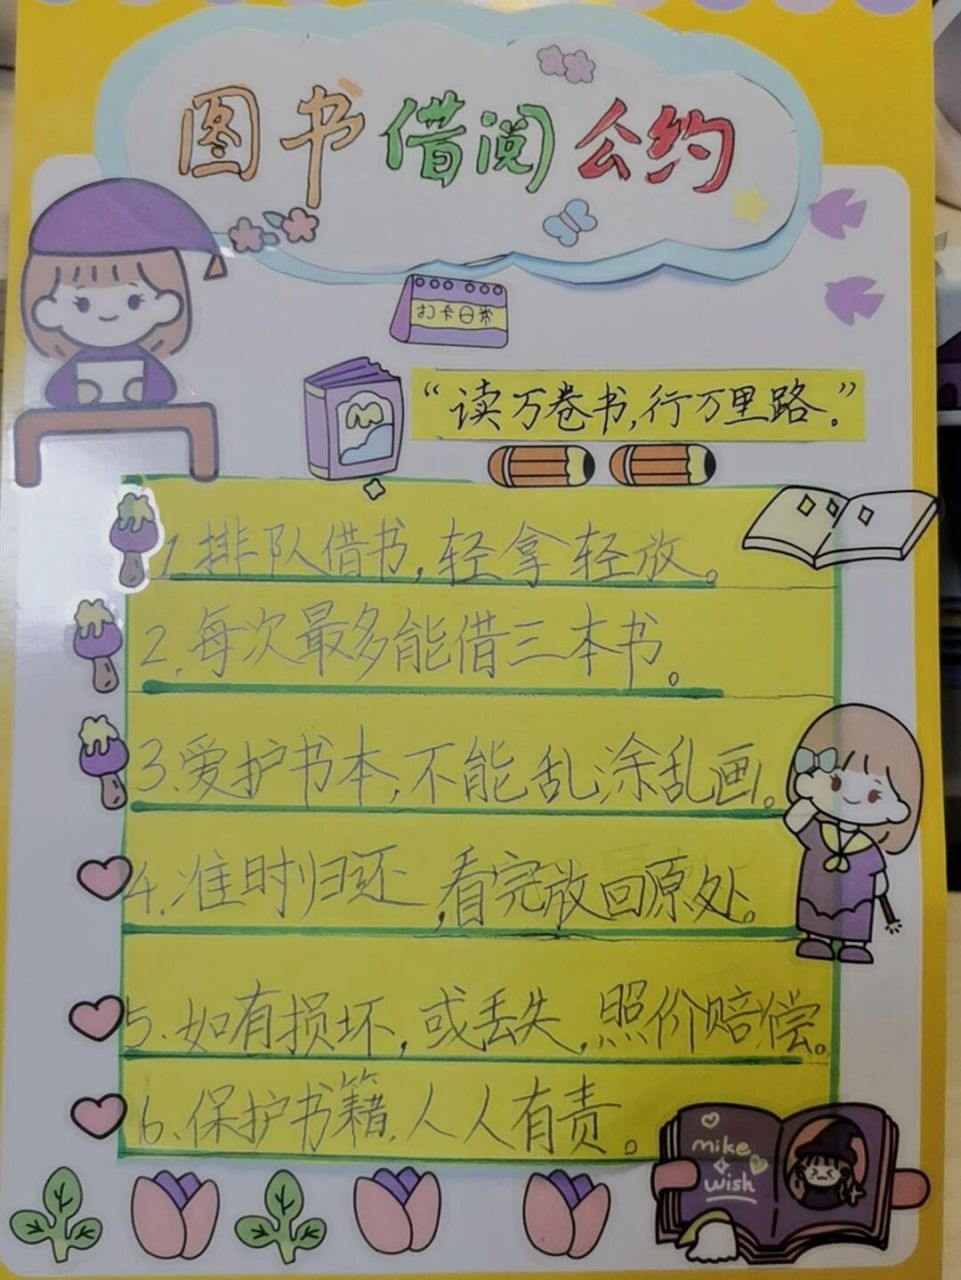 图书借阅公约
打卡日常
“读万卷书,行万里路。”
1.排队借书,轻拿轻放。
2.每次最多能借三本书。
3.爱护书本,不能乱涂乱画。
4.准时归还,看完放回原处。
5.如有损坏,或丢失,照价赔偿。
6.保护书籍,人人有责。
mike
wish